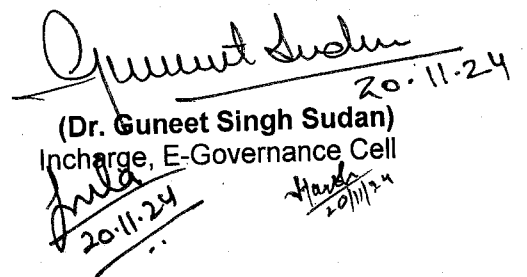 Guneet Sudan
20.11.24
(Dr. Guneet Singh Sudan)
Incharge, E-Governance Cell
20.11.24
20/11/24